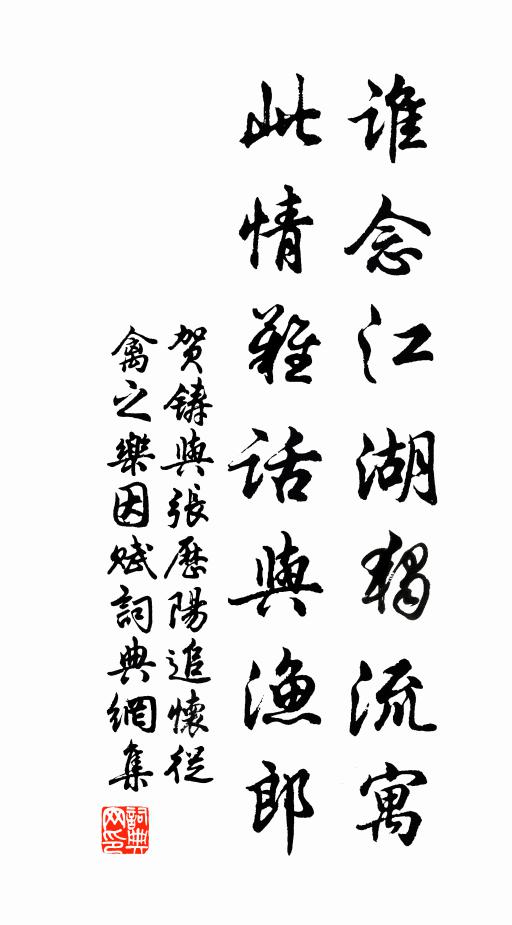 誰念江湖獨流寓
此情難話與漁郎
贺鑄與張歷陽追懷從
禽之樂因賦詞典網集
詞典
网印